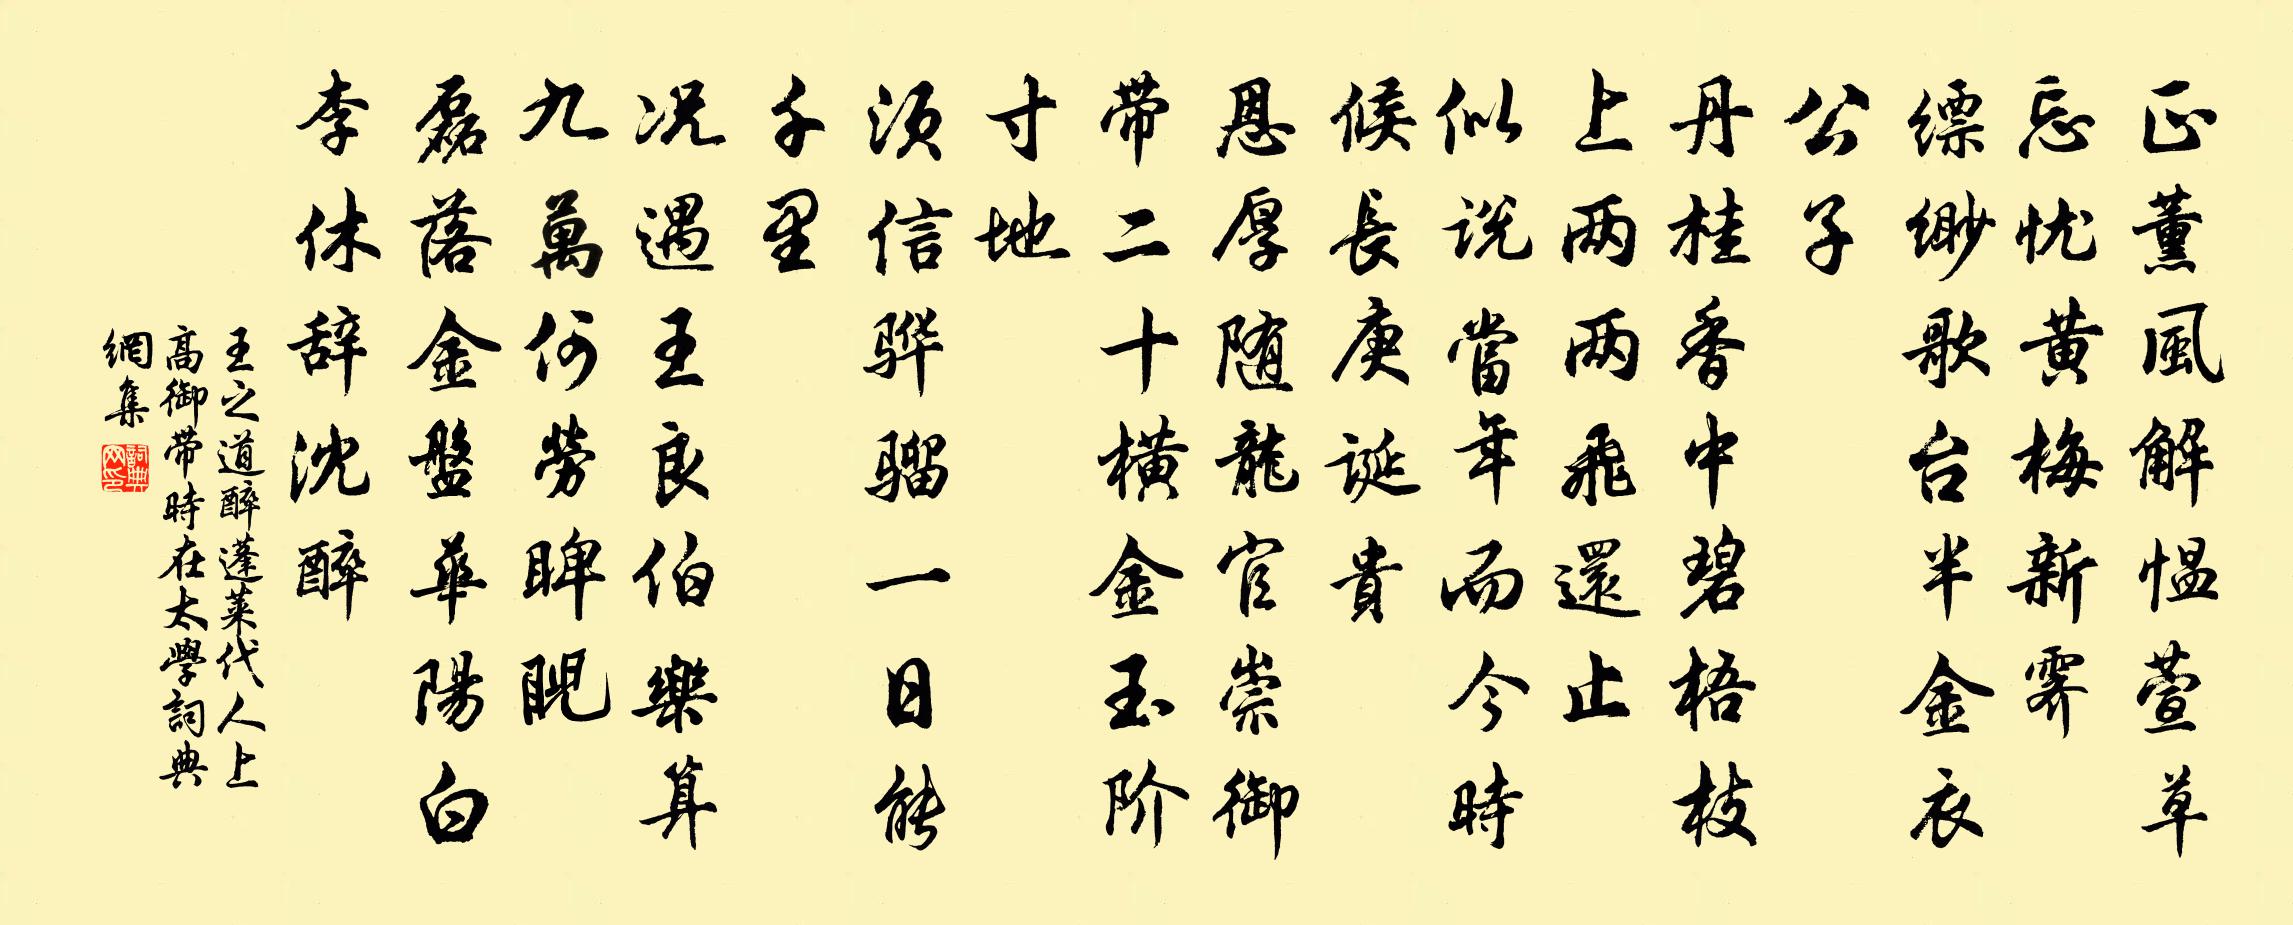 正薰風解愠萱草
忘忧黄梅新霁
缥缈歌台半金衣
公子
丹桂香中碧梧枝
上两两飛還止
似说當年而今時
候長庚誕貴
恩厚随龍官崇御
带二十横金玉阶
寸地
须信骅骝一日能
千里
况遇王良伯樂算
九萬何勞睥睨
磊落金盤華陽白
李休辞沈醉
王之道醉蓬莱代人上
高御带時在太學詞典
網集
詞典网印